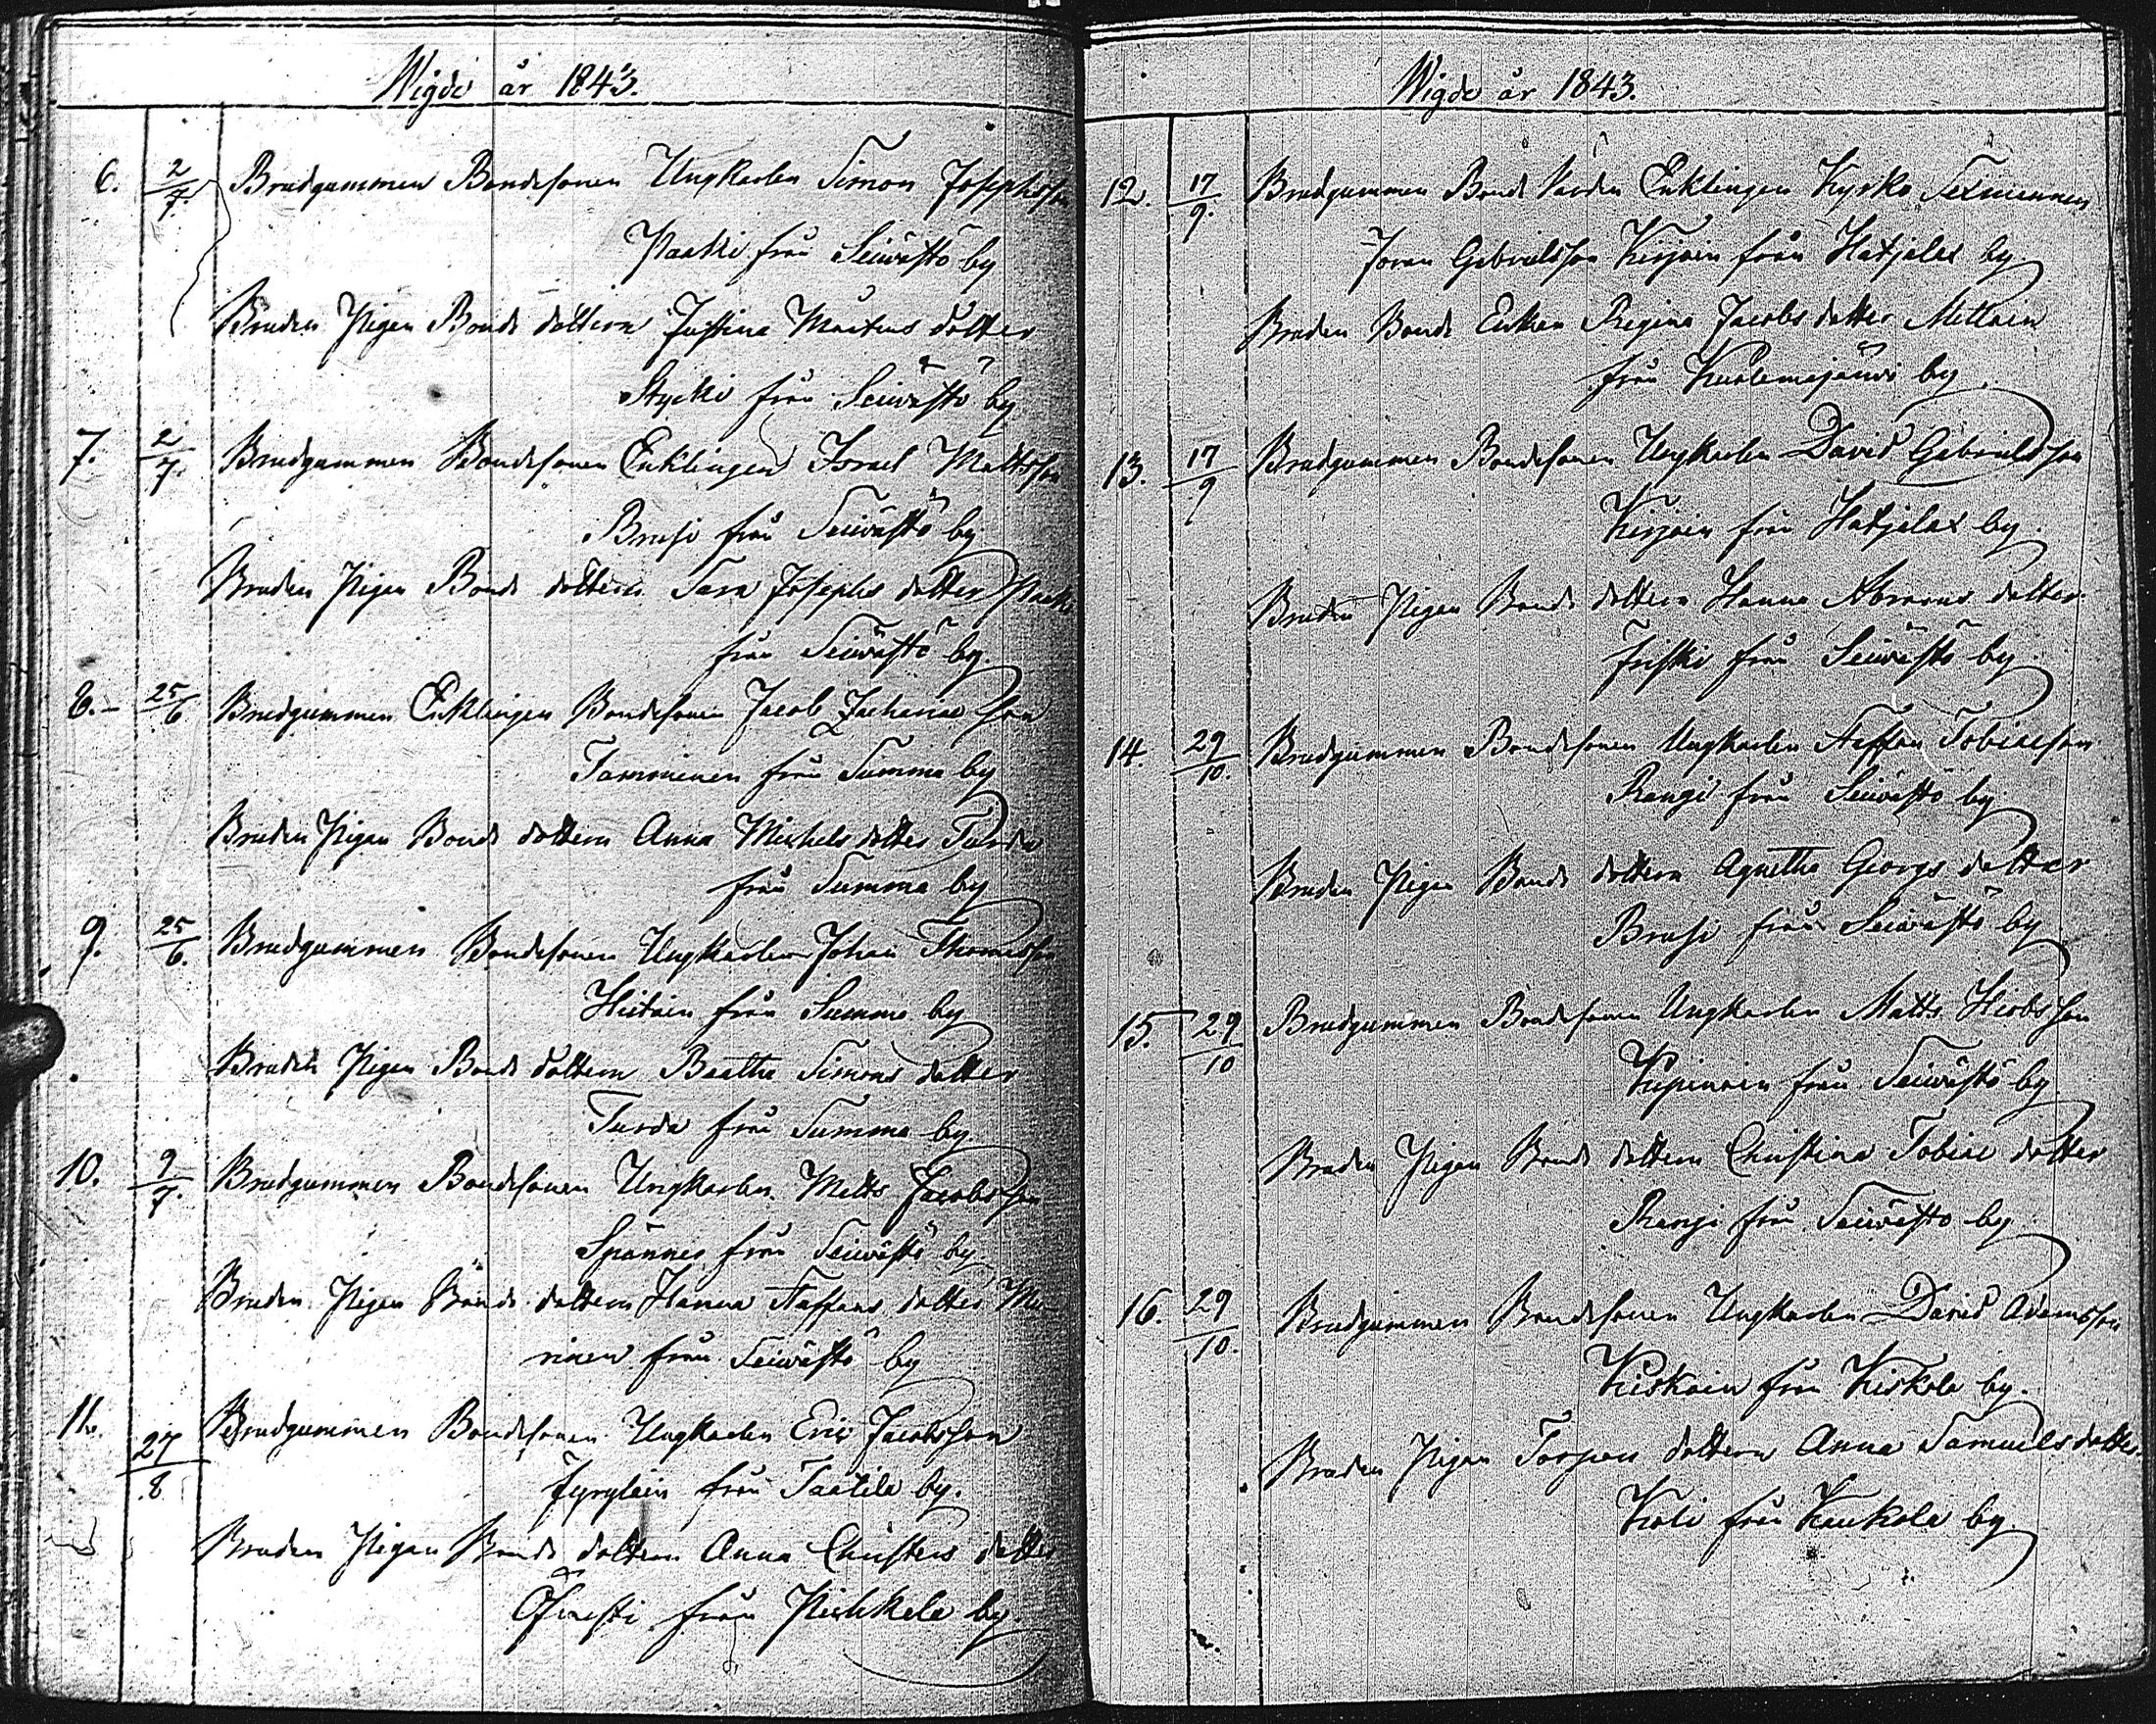 Wigde år 1843.
6. 2/7. Brudgummen Bondesonen Ungkarlen Simon Josephsson
Paakki från Seiwästö by
Bruden Pigan Bonde dottern Justina Martins dotter
Stycki från Seiwästö by
7. 2/7. Brudgummen Bondesonen Enklingen Israel Mattsson
Brusi från Seiwästö by
Bruden Pigan Bonde dottern Sara Josephs dotter Paaki
från Seiwästö by.
8. 25/6 Brudgummen Enklingen Bondesonen Jacob Zachariae son
Tamminen från Summa by
Bruden Pigan Bonde dottern Anna Michels dotter Turda
från Summa by
9. 25/6. Brudgummen Bondesonen Ungkarlen Johan Thomasson
Hietain från Summa by
Bruden Pigan Bonde dottern Beatha Simons dotter
Turda från Summa by
10. 9/7. Brudgummen Bondesonen Ungkarlen Matts Jacobsson
Spännes från Seiwästö by.
Bruden Pigan Bonde dottern Hanna Staffans dotter Mu-
rinen från Seiwästö by
11. 27/8 Brudgummen Bondesonen Ungkarlen Eric Jacobsson
Jyryläin från Taatila by.
Bruden Pigan Bonde dottern Anna Christers dotter
från by.
Wigde år 1843.
12. 17/9. Brudgummen Bonde Enklingen Kyrko Sexmannen
Joran Gabrielsson Kirjain från Hatjalax by
Bruden Bonde Enkan Regina Jacobs dotter Mettain
från Kuolemajärvi by
13. 17/9 Brudgummen Bondesonen Ungkarlen David Gabrielsson
Kirjain från Hatjalax by.
Bruden Pigan Bonde dottern Hanna Abrams dotter
Friski från Seiwästö by
14. 29/10. Brudgummen Bondesonen Ungkarlen Staffan Tobiaeson
Rangi från Seiwästö by
Bruden Pigan Bonde dottern Agnetha Georgs dotter
Brusi från Seiwästö by
15. 29/10 Brudgummen Bondesonen Ungkarlen Matts Hiobsson
Kupinain från Seiwästö by
Bruden Pigan Bonde dottern Christina Tobiae dotter
Rangi från Seiwästö by
16. 29/10. Brudgummen Bondesonen Ungkarlen David Adamsson
Kiskoin från Kiskola by.
Bruden Pigan Torpare dottern Anna Samuels dotter
Koli från Kaukola by